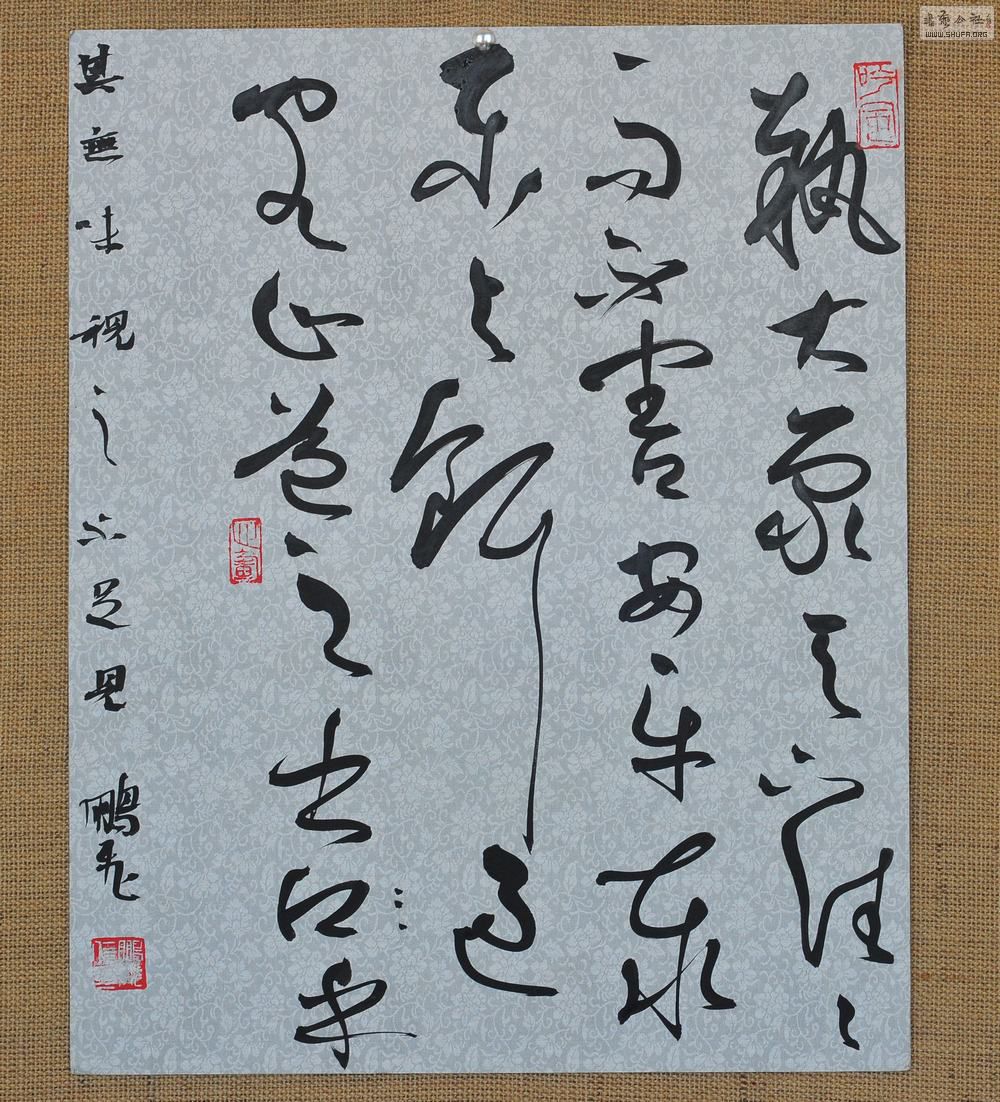 執大象天下往々
而不害安平泰
樂与餌過
客止道之出口乎
其無味視之不足見 鵬飛
書藝公社
WWW.SHUFA.ORG